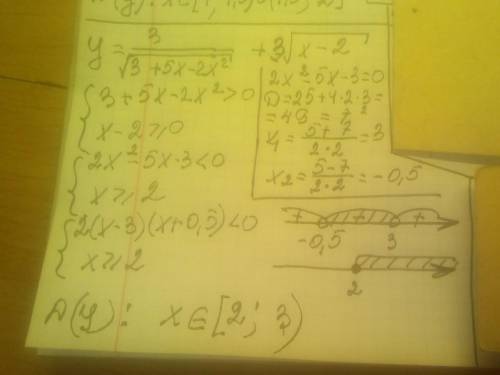 y = 3/√(3+5x-2x²) + 3√(x-2)
{ 3+5x-2x²>0
x-2⩾0
{ 2x²-5x-3<0
x⩾2
{ 2(x-3)(x+0,5)<0
x⩾2
2x²-5x-3=0
D=25+4·2·3=
=49=7²
x₁=(5+7)/(2·2)=3
x₂=(5-7)/(2·2)=-0,5
+ + +
-0,5 3
2
D(y): x∈[2; 3)